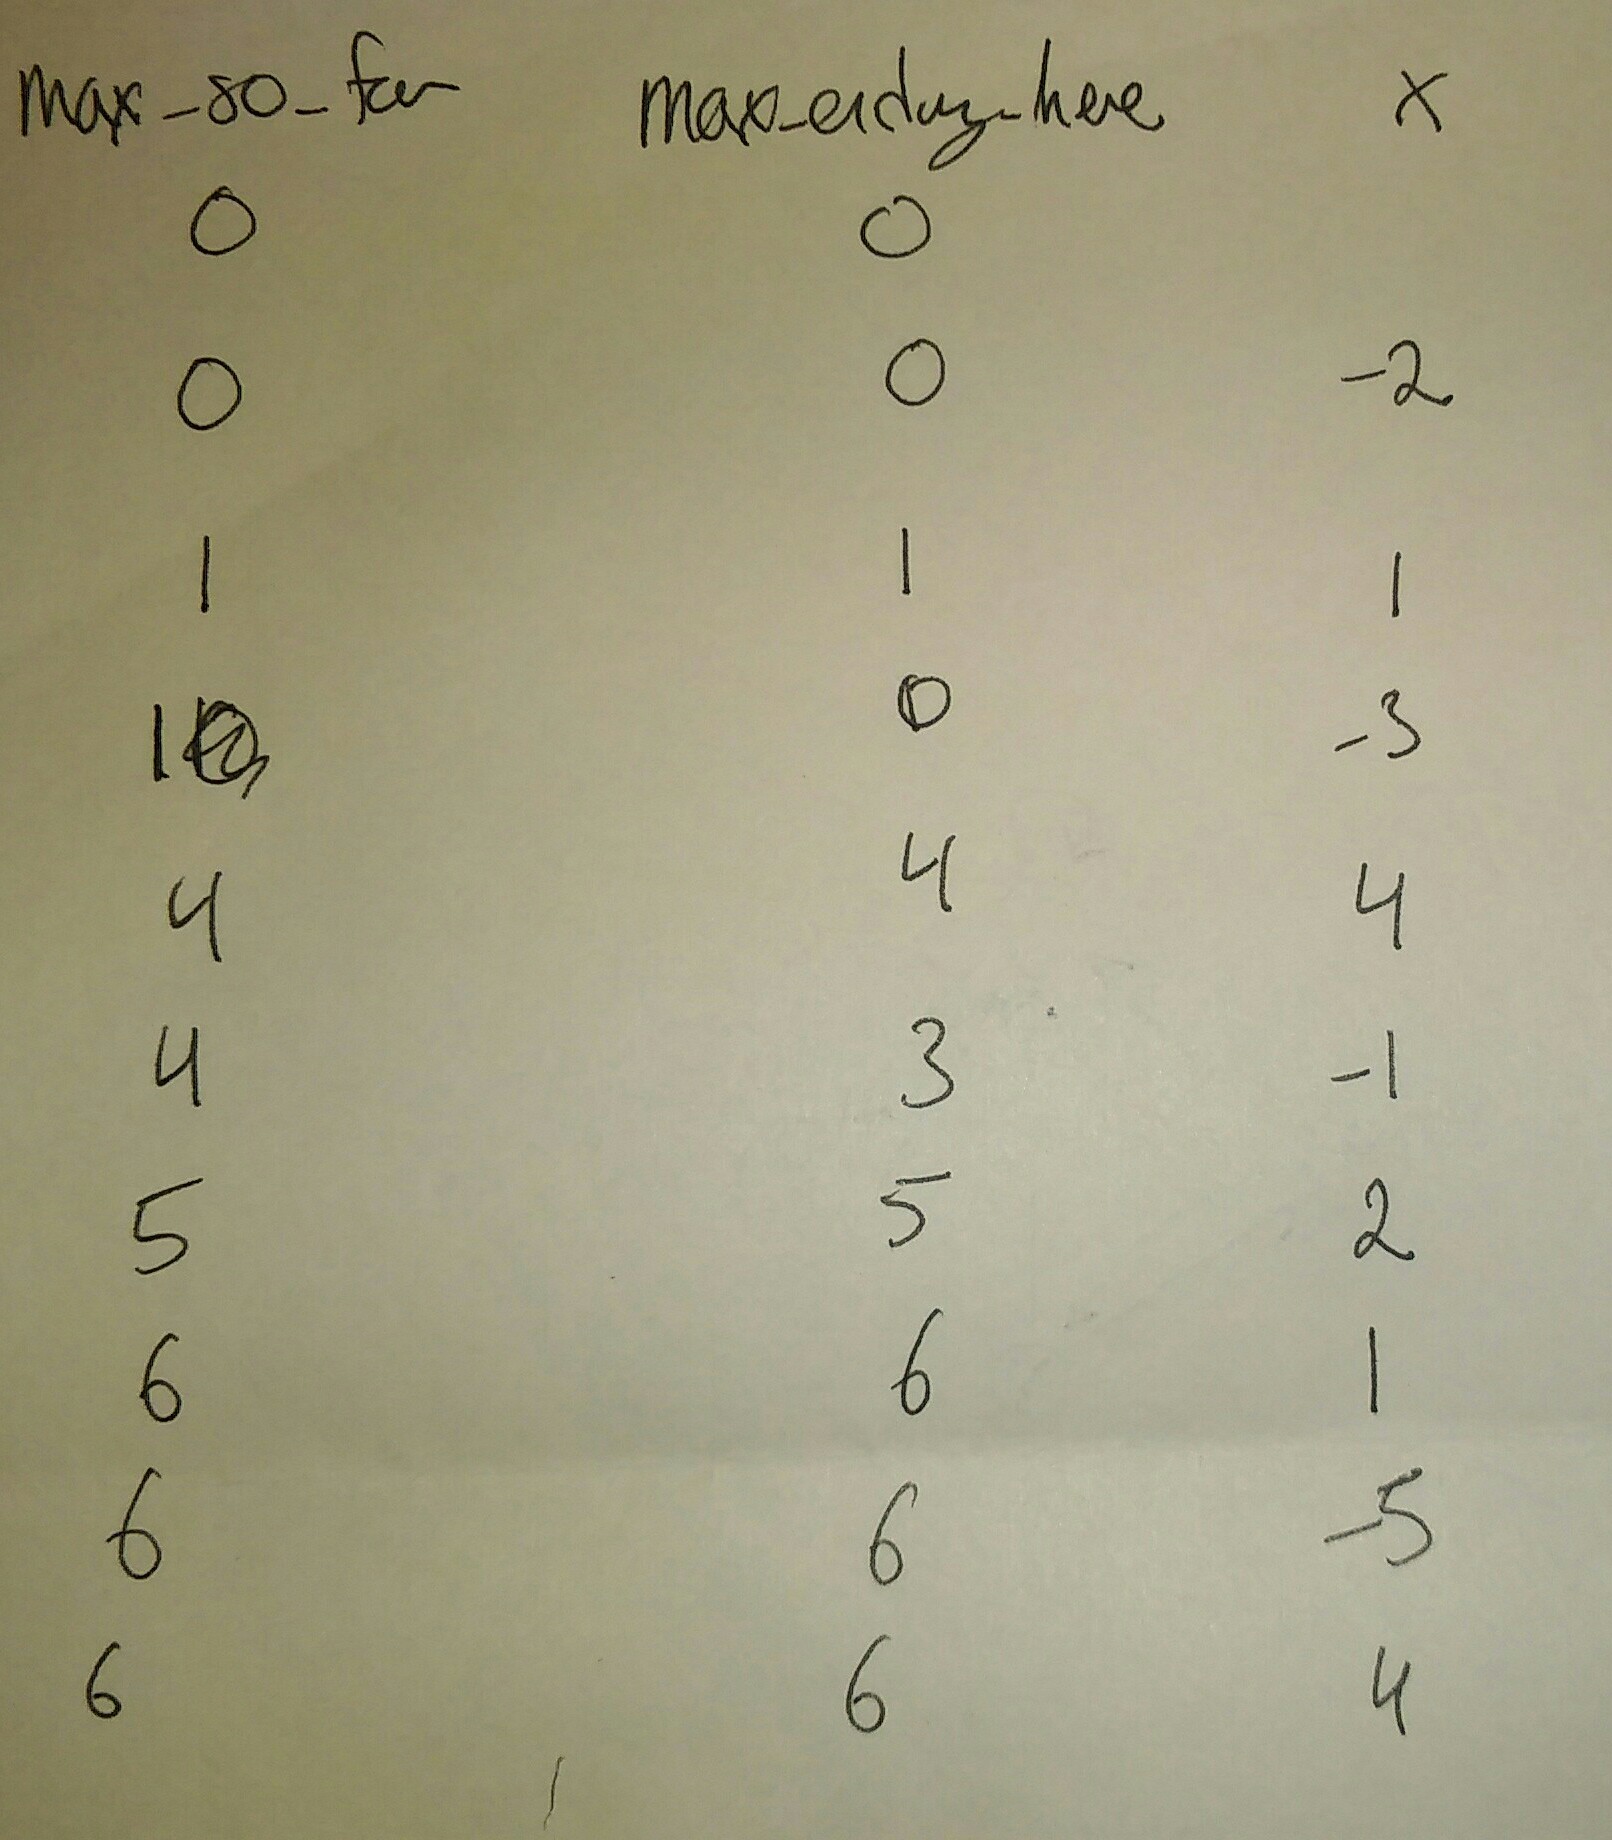 max_so_far max_ending_here x
0 0
0 0 -2
1 1 1
1 0 -3
4 4 4
4 3 -1
5 5 2
6 6 1
6 6 -5
6 6 4